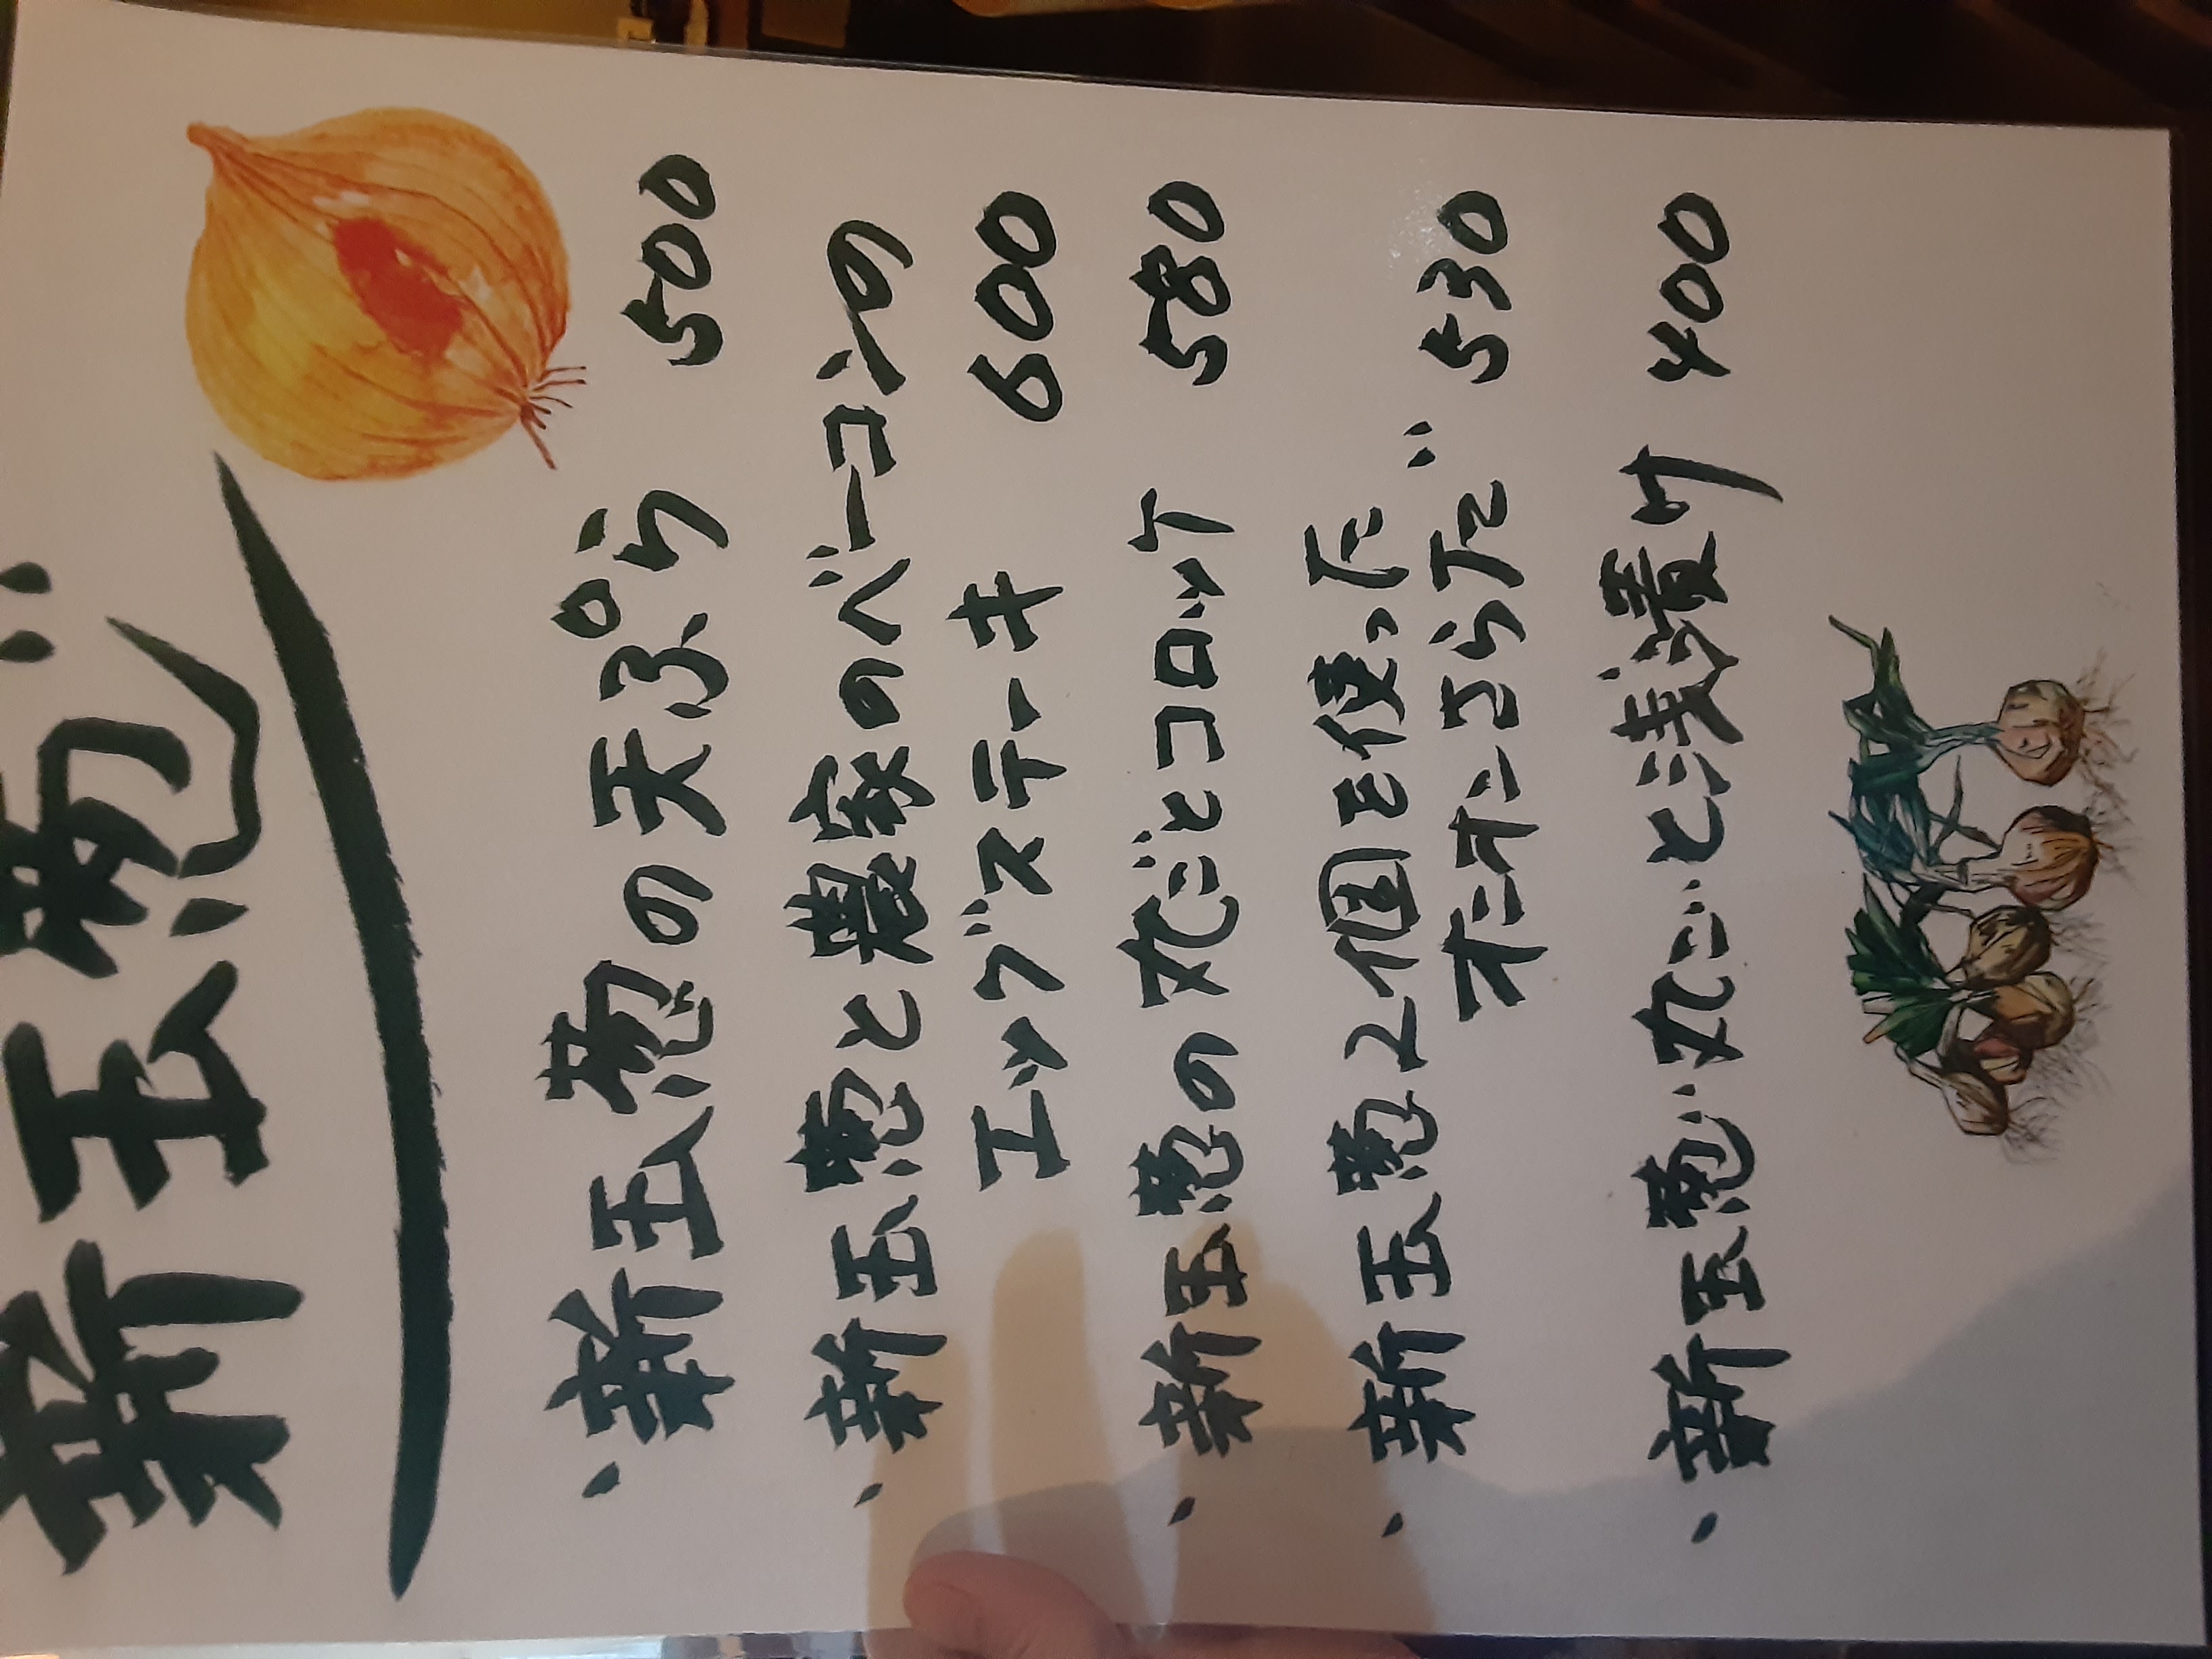 新玉葱〃
、新玉葱の天ぷら 500
、新玉葱と農家のベーコンの
エッグステーキ 600
、新玉葱の丸ごとコロッケ 580
、新玉葱2個を使った〃
オニオンさらだ 530
、新玉葱〃丸ごと浅漬け 400